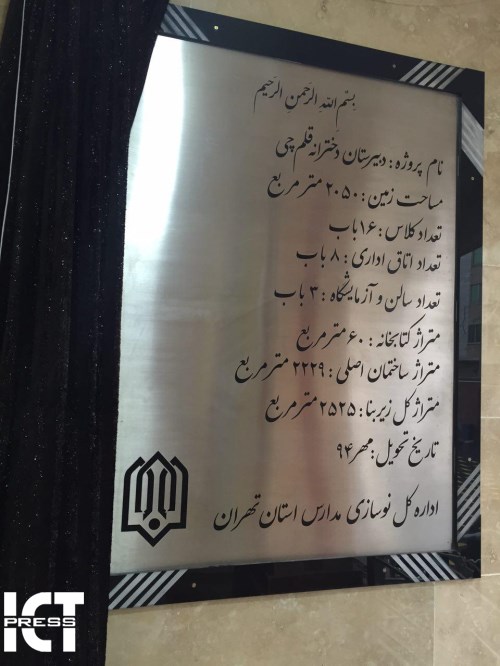 بسم الله الرحمن الرحیم
نام پروژه : دبیرستان دخترانه قلم چی
مساحت زمین : ۲۰۵۰ متر مربع
تعداد کلاس : ۱۶ باب
تعداد اتاق اداری : ۸ باب
تعداد سالن و آزمایشگاه : ۳ باب
متراژ کتابخانه : ۶۰ متر مربع
متراژ ساختمان اصلی : ۲۲۲۹ متر مربع
متراژ کل زیربنا : ۲۵۲۵ متر مربع
تاریخ تحویل : مهر ۹۴
اداره کل نوسازی مدارس استان تهران
ICT
PRESS